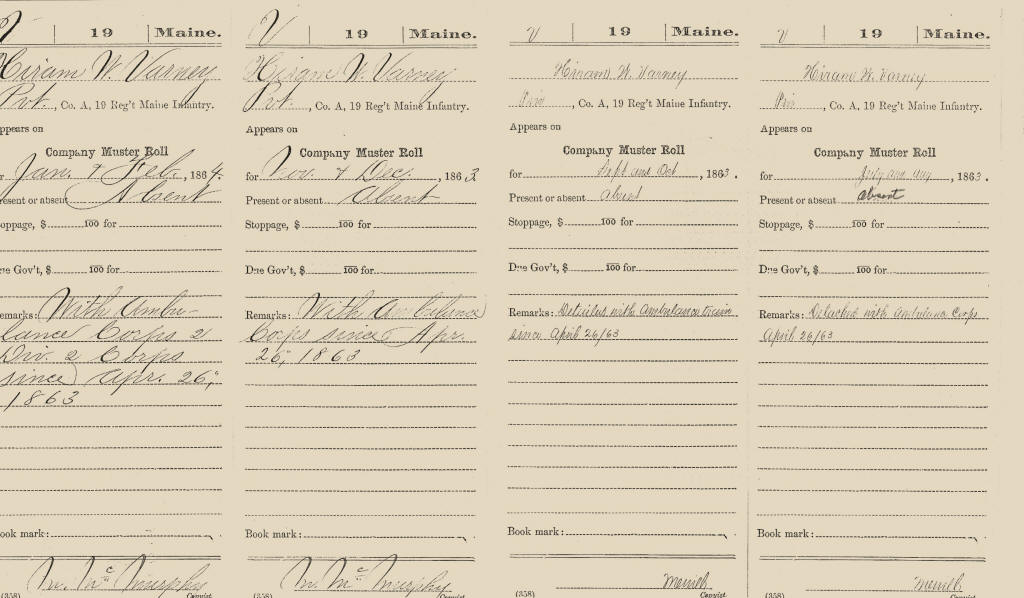 V | 19 | Maine.
Hiram W. Varney
Pvt., Co. A, 19 Reg't Maine Infantry.
Appears on
Company Muster Roll
r Jan. & Feb., 1864.
Present or absent Absent
Stoppage, $ 100 for
ue Gov't, $ 100 for
Remarks: With Ambu-
lance Corps 2
Div. 2 Corps
since Apr. 26",
1863
ook mark:
(358)
Copyist.
V | 19 | Maine.
Hiram W. Varney
Pvt., Co. A, 19 Reg't Maine Infantry.
Appears on
Company Muster Roll
for Nov. & Dec., 1863
Present or absent Absent
Stoppage, $ 100 for
Due Gov't, $ 100 for
Remarks: With Ambulance
Corps since Apr.
26", 1863
Book mark:
(358)
Copyist.
V | 19 | Maine.
Hiram W. Varney
Priv, Co. A, 19 Reg't Maine Infantry.
Appears on
Company Muster Roll
for Sept and Oct, 1863.
Present or absent Absent
Stoppage, $ 100 for
Due Gov't, $ 100 for
Remarks: Detailed with Ambulance train
since April 26/63
Book mark:
Merrill
(358)
Copyist.
V | 19 | Maine.
Hiram W. Varney
Priv, Co. A, 19 Reg't Maine Infantry.
Appears on
Company Muster Roll
for July and Aug, 1863.
Present or absent absent
Stoppage, $ 100 for
Due Gov't, $ 100 for
Remarks: Detached with Ambulance Corps
April 26/63
Book mark:
Merrill
(358)
Copyist.